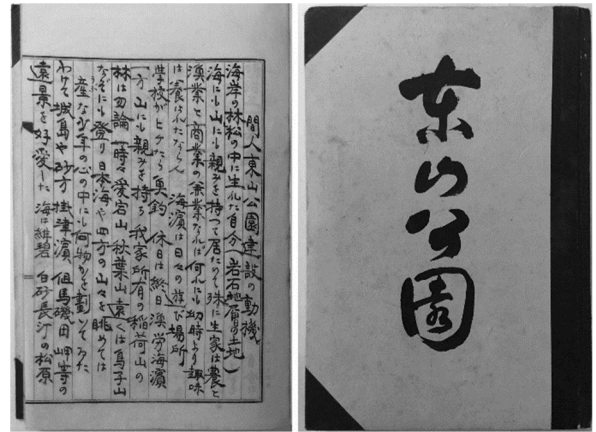 东山公園
間人東山公園建設の動機
海岸の林松の中に生れた自分(岩石地帯の土地)
海にも山にも親みを持つて居た 殊に生家は農と
漁業と商業の兼業なれば何れにも幼時より趣味
は養はれたならん 海濱は日々の遊び場所
学校がヒケたら魚釣 休日は終日 漁労海濱
一方山にも親みを持ち 我家所有の稲荷山の
林は勿論 時々愛宕山 秋葉山 遠くは鳥子山
などにも登り日本海や四方の山々を眺めては
少年の心の中にも何物かを劃してゐた
わけて城島や砂方 掛津濱 但馬磯田岬等の
遠景を好愛した 海は維碧 白砂長汀の松原